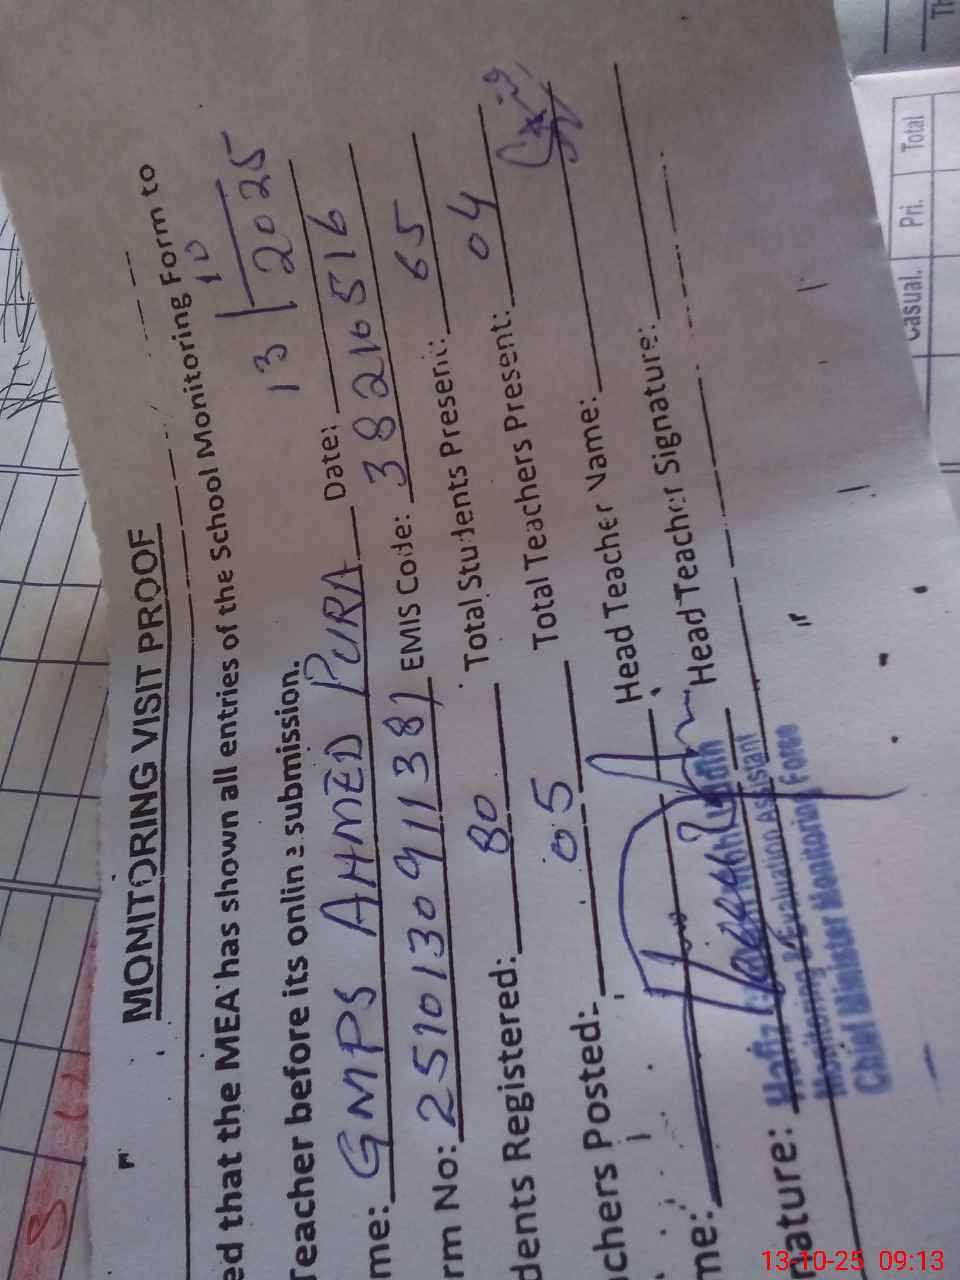 MONITORING VISIT PROOF
ed that the MEA has shown all entries of the School Monitoring Form to
Teacher before its online submission.
me: GMPS AHMED PURA Date: 13/10/2025
rm No: 2510130911381 EMIS Code: 38210516
dents Registered: 80 Total Students Present: 65
chers Posted: 05 Total Teachers Present: 04
me: Head Teacher Name:
nature: Head Teacher Signature:
Hafiz
Monitoring & Evaluation Assistant
Chief Minister Monitoring Force
Casual. Pri. Total
13-10-25 09:13